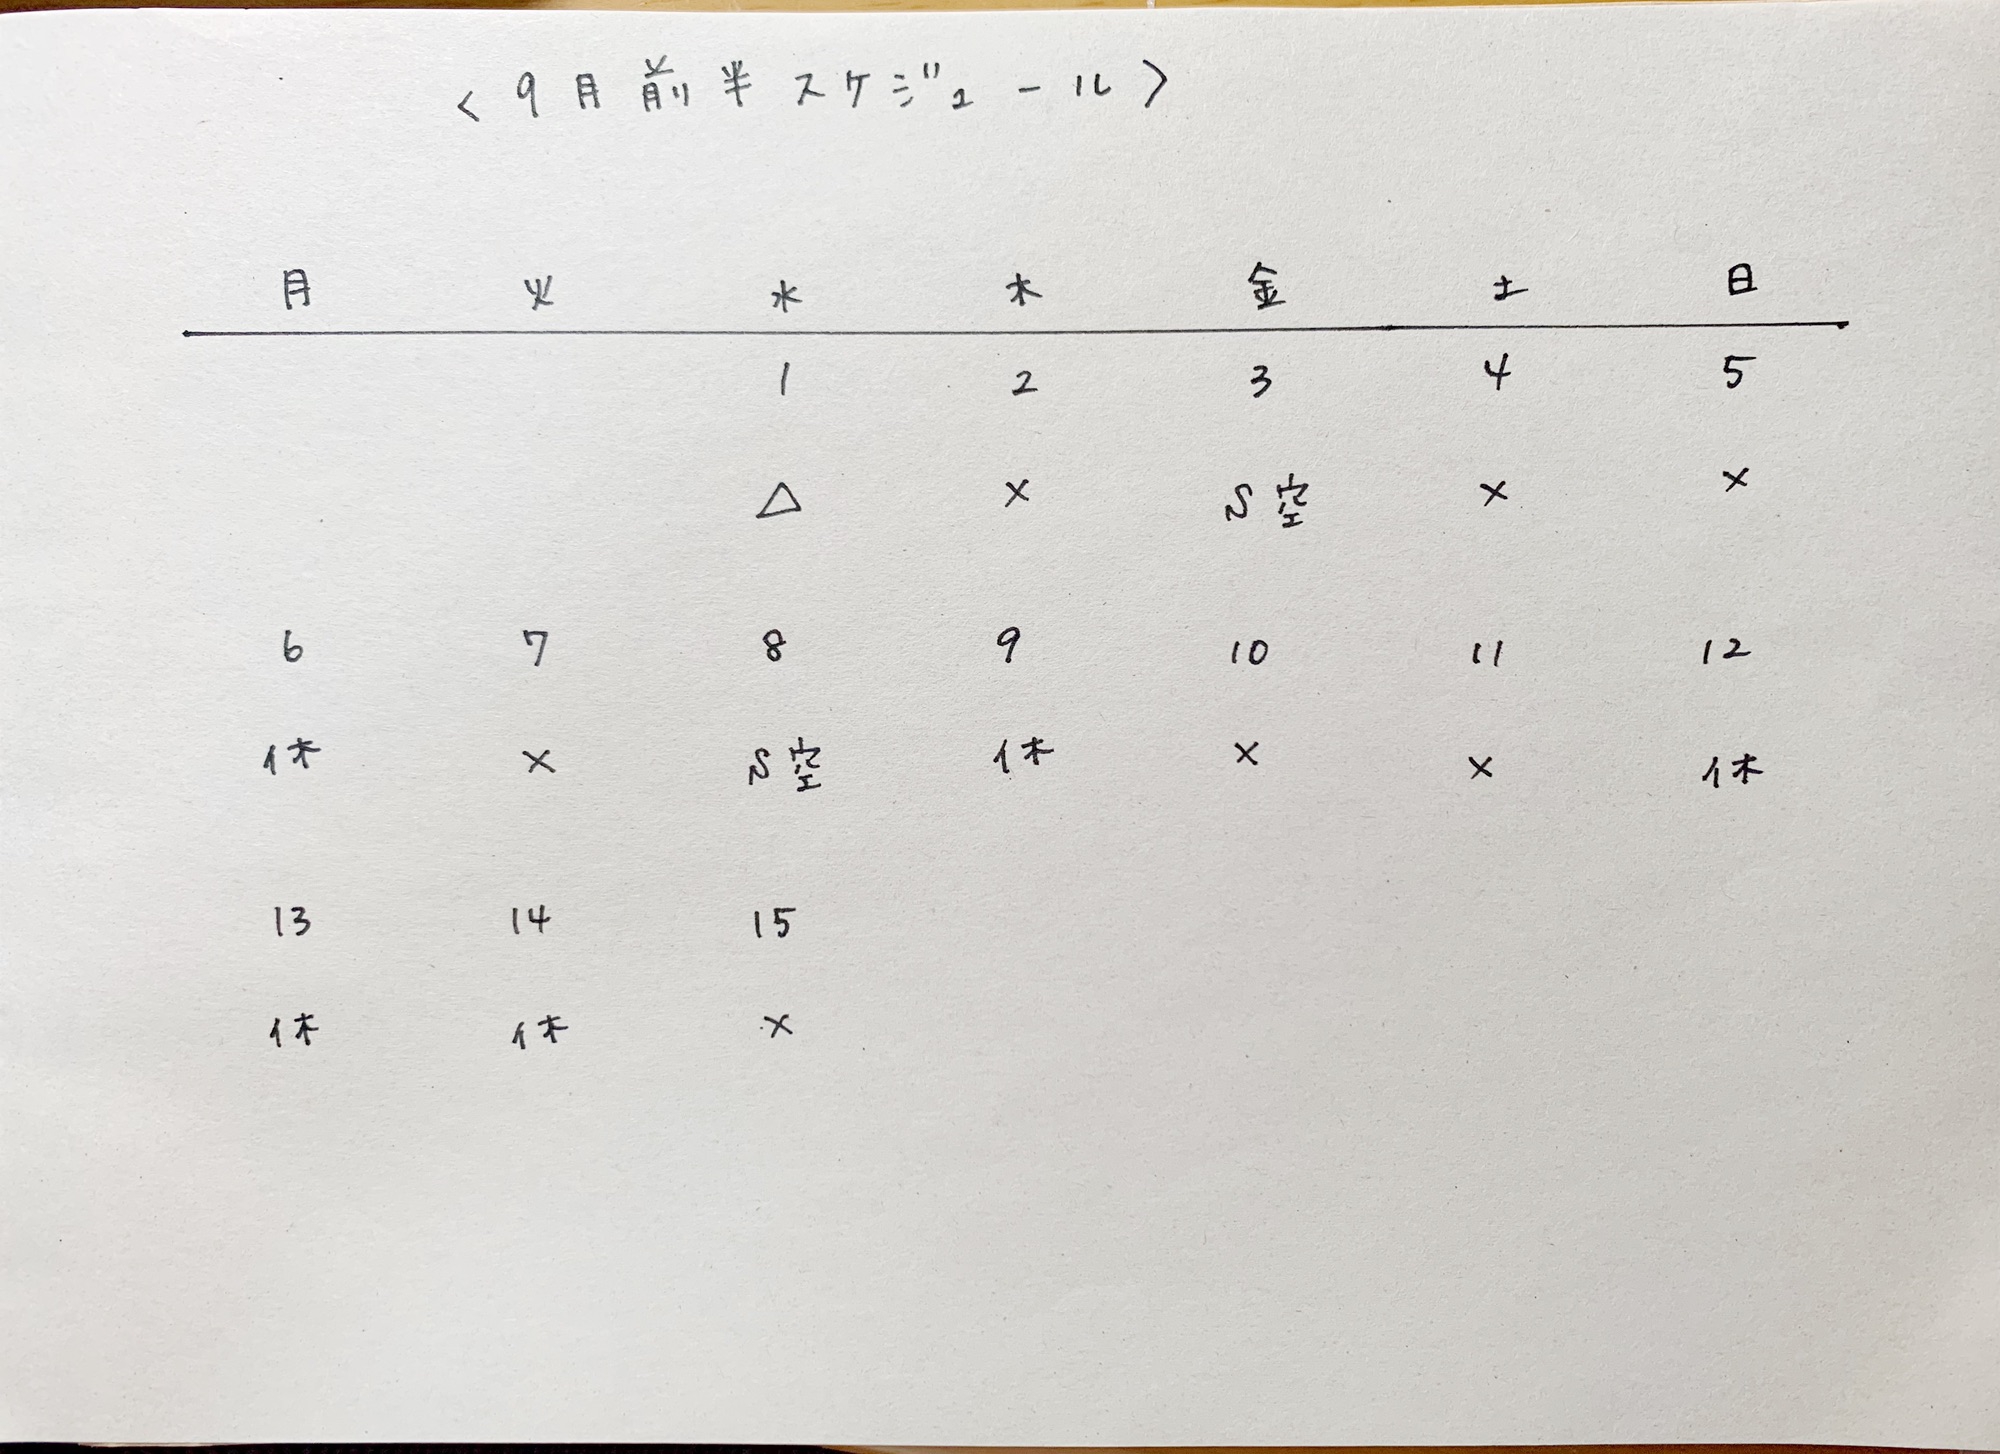 <9月前半スケジュール>
月 火 水 木 金 土 日
1 2 3 4 5
△ × S空 × ×
6 7 8 9 10 11 12
休 × S空 休 × × 休
13 14 15
休 休 ×